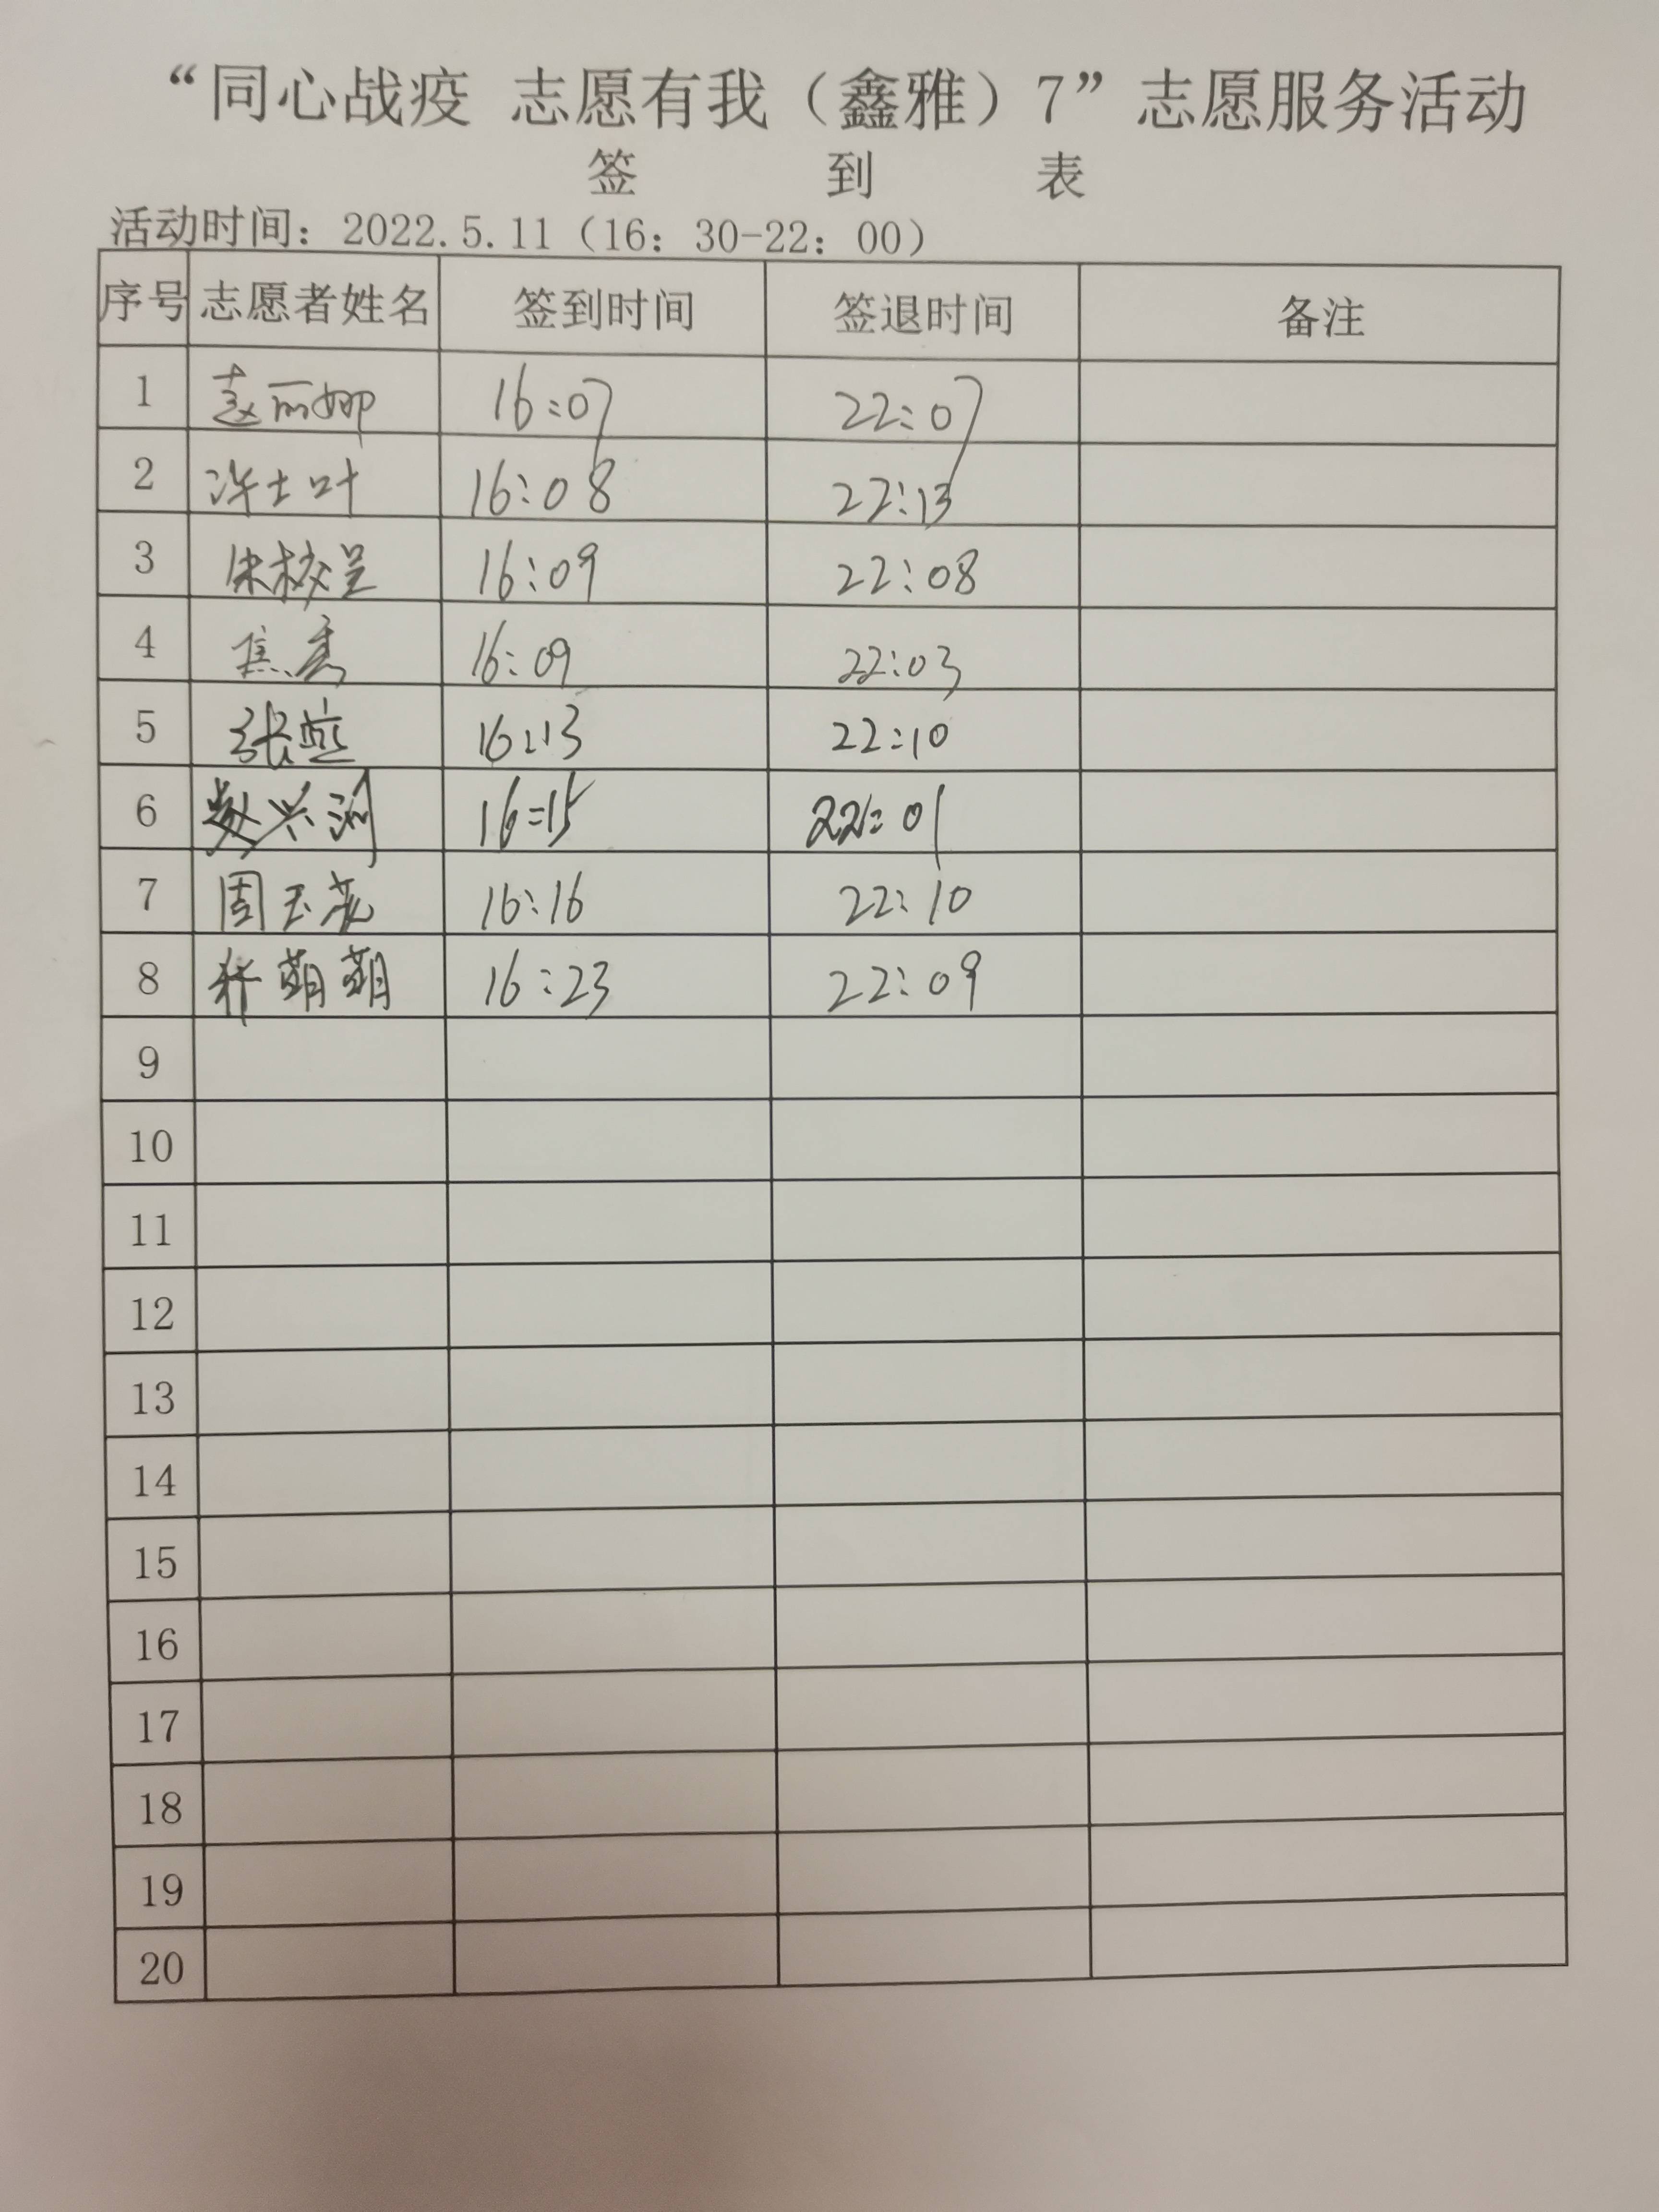 “同心战疫 志愿有我（鑫雅）7”志愿服务活动
签 到 表
活动时间：2022.5.11（16：30-22：00）
序号 志愿者姓名 签到时间 签退时间 备注
1 赵丽娜 16:07 22:07
2 许士叶 16:08 22:13
3 16:09 22:08
4 16:09 22:03
5 张 16:13 22:10
6 16:15 22:01
7 周玉花 16:16 22:10
8 萌萌 16:23 22:09
9
10
11
12
13
14
15
16
17
18
19
20